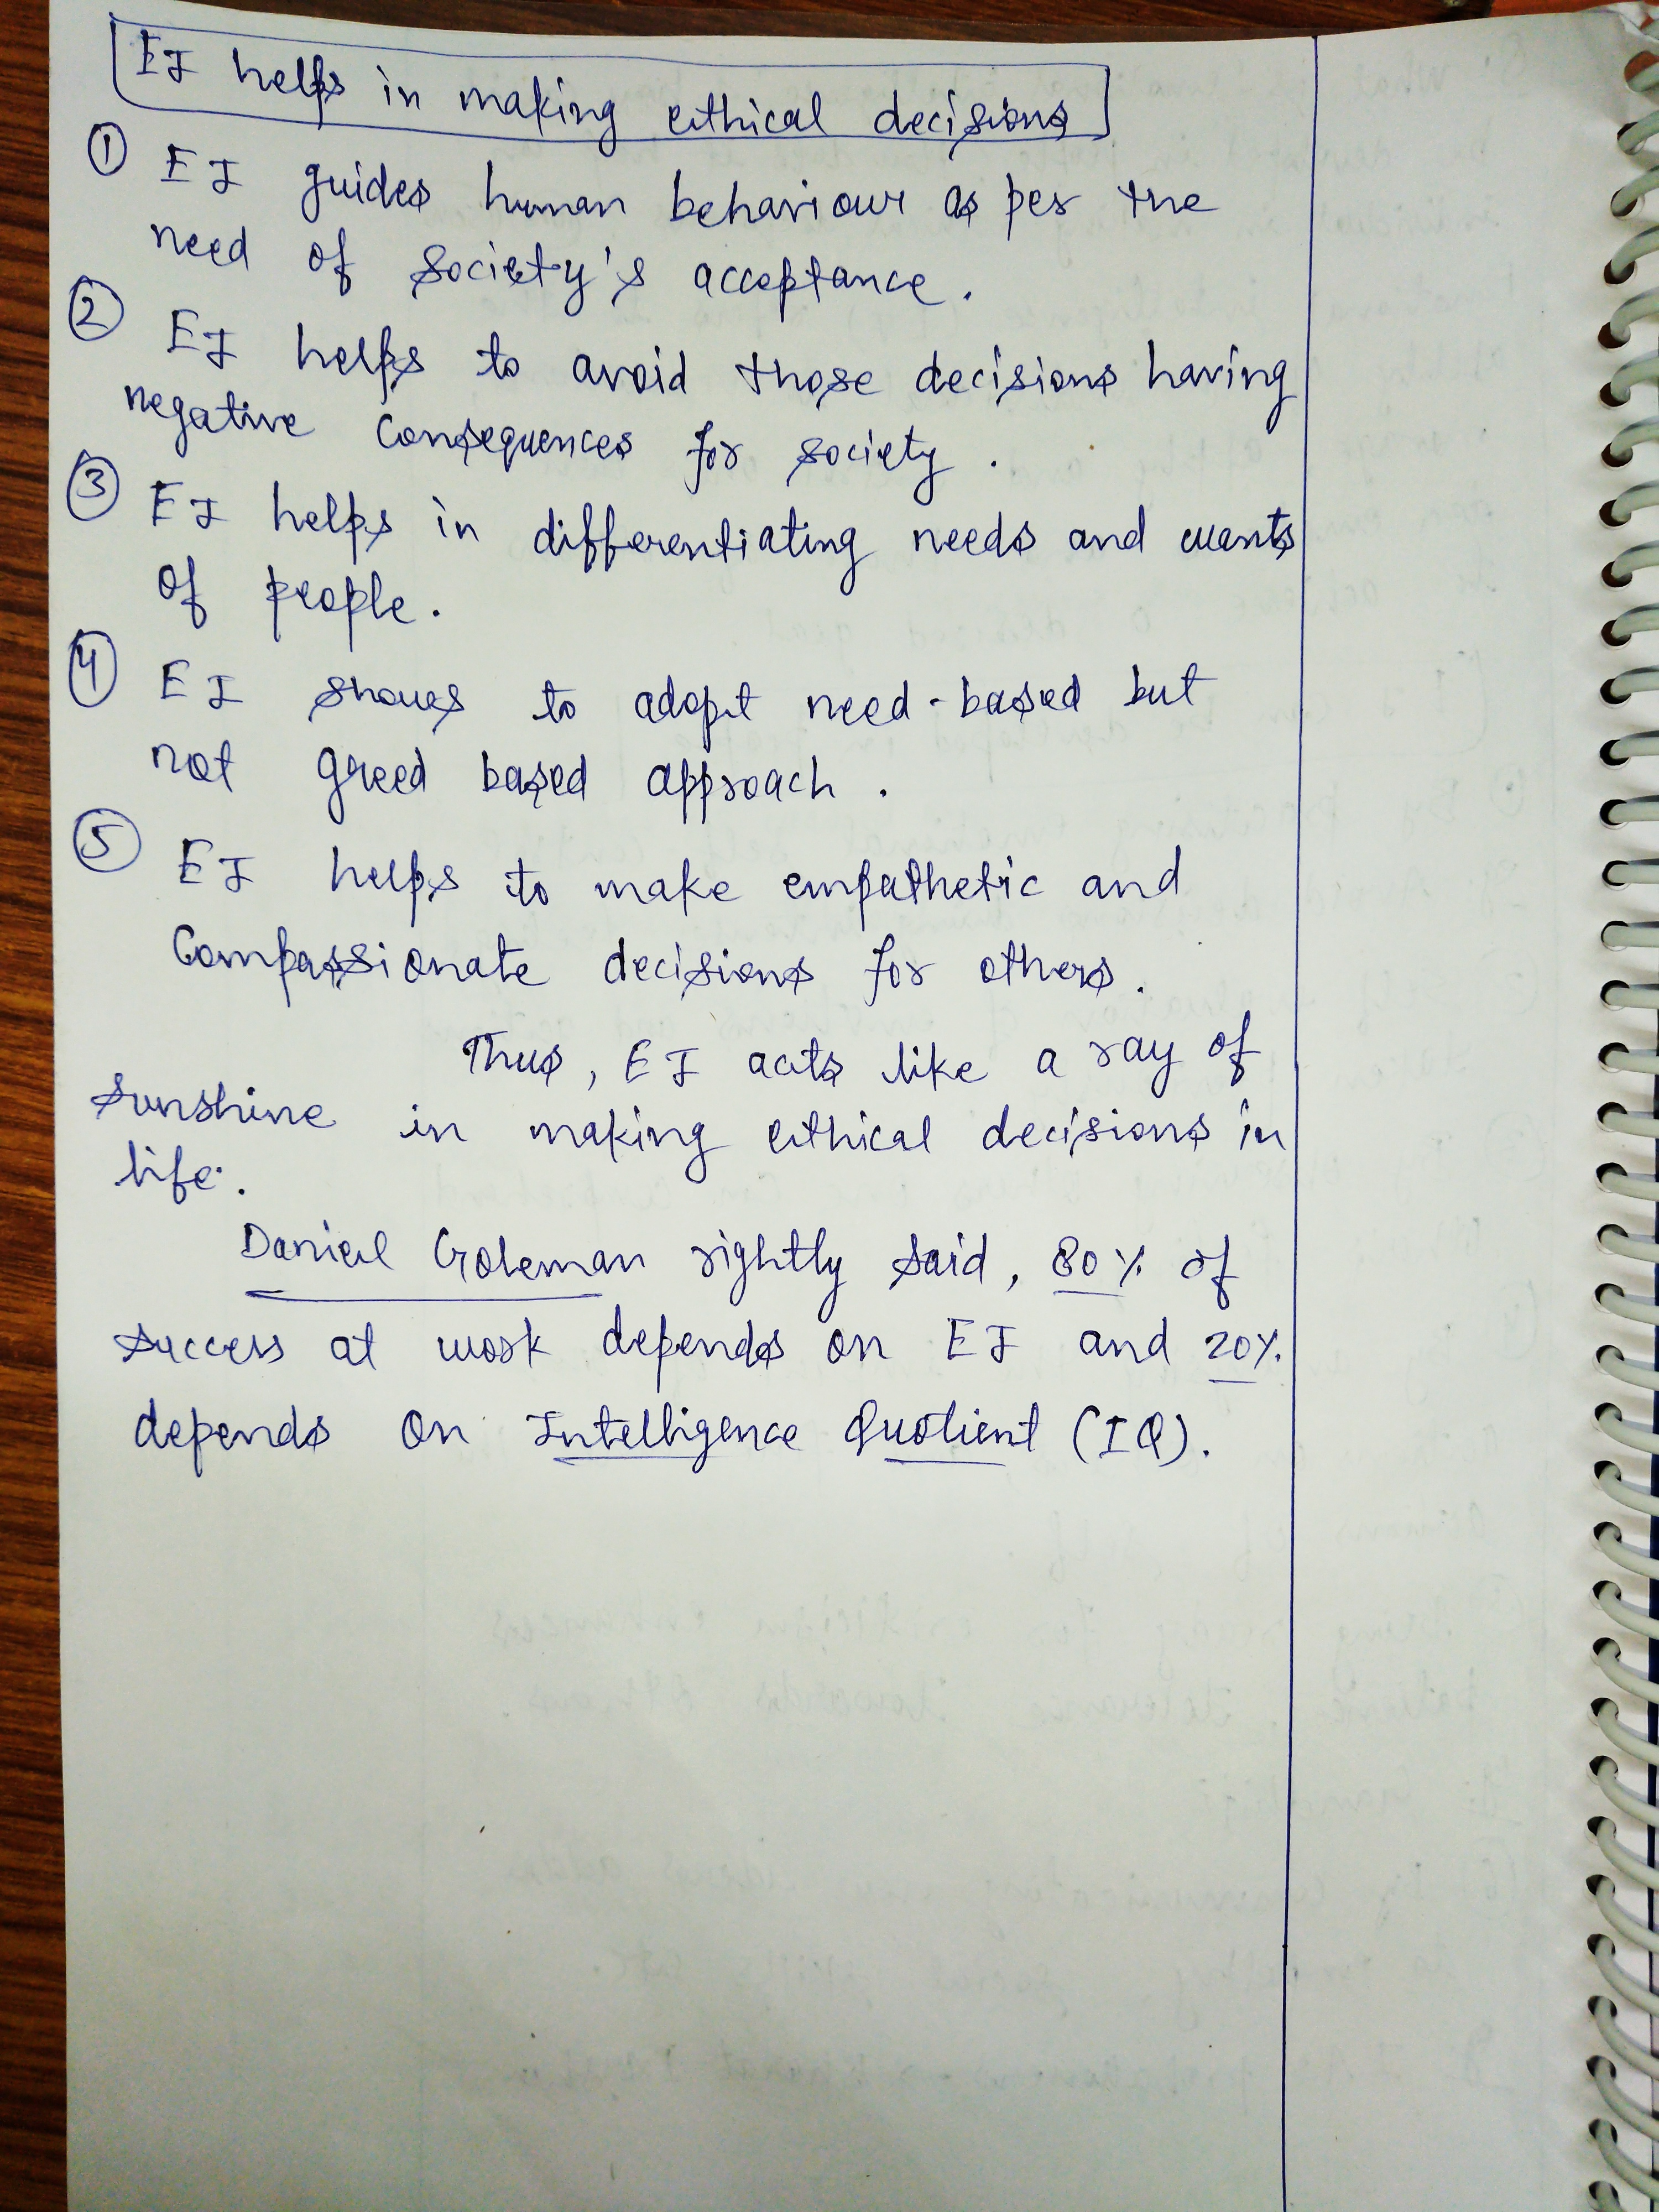 EI helps in making ethical decisions
① EI guides human behaviour as per the
need of society's acceptance.
② EI helps to avoid those decisions having
negative consequences for society.
③ EI helps in differentiating needs and wants
of people.
④ EI shows to adopt need-based but
not greed based approach.
⑤ EI helps to make empathetic and
Compassionate decisions for others.
Thus, EI acts like a ray of
sunshine in making ethical decisions in
life.
Daniel Goleman rightly said, 80% of
success at work depends on EI and 20%
depends on Intelligence Quotient (IQ).